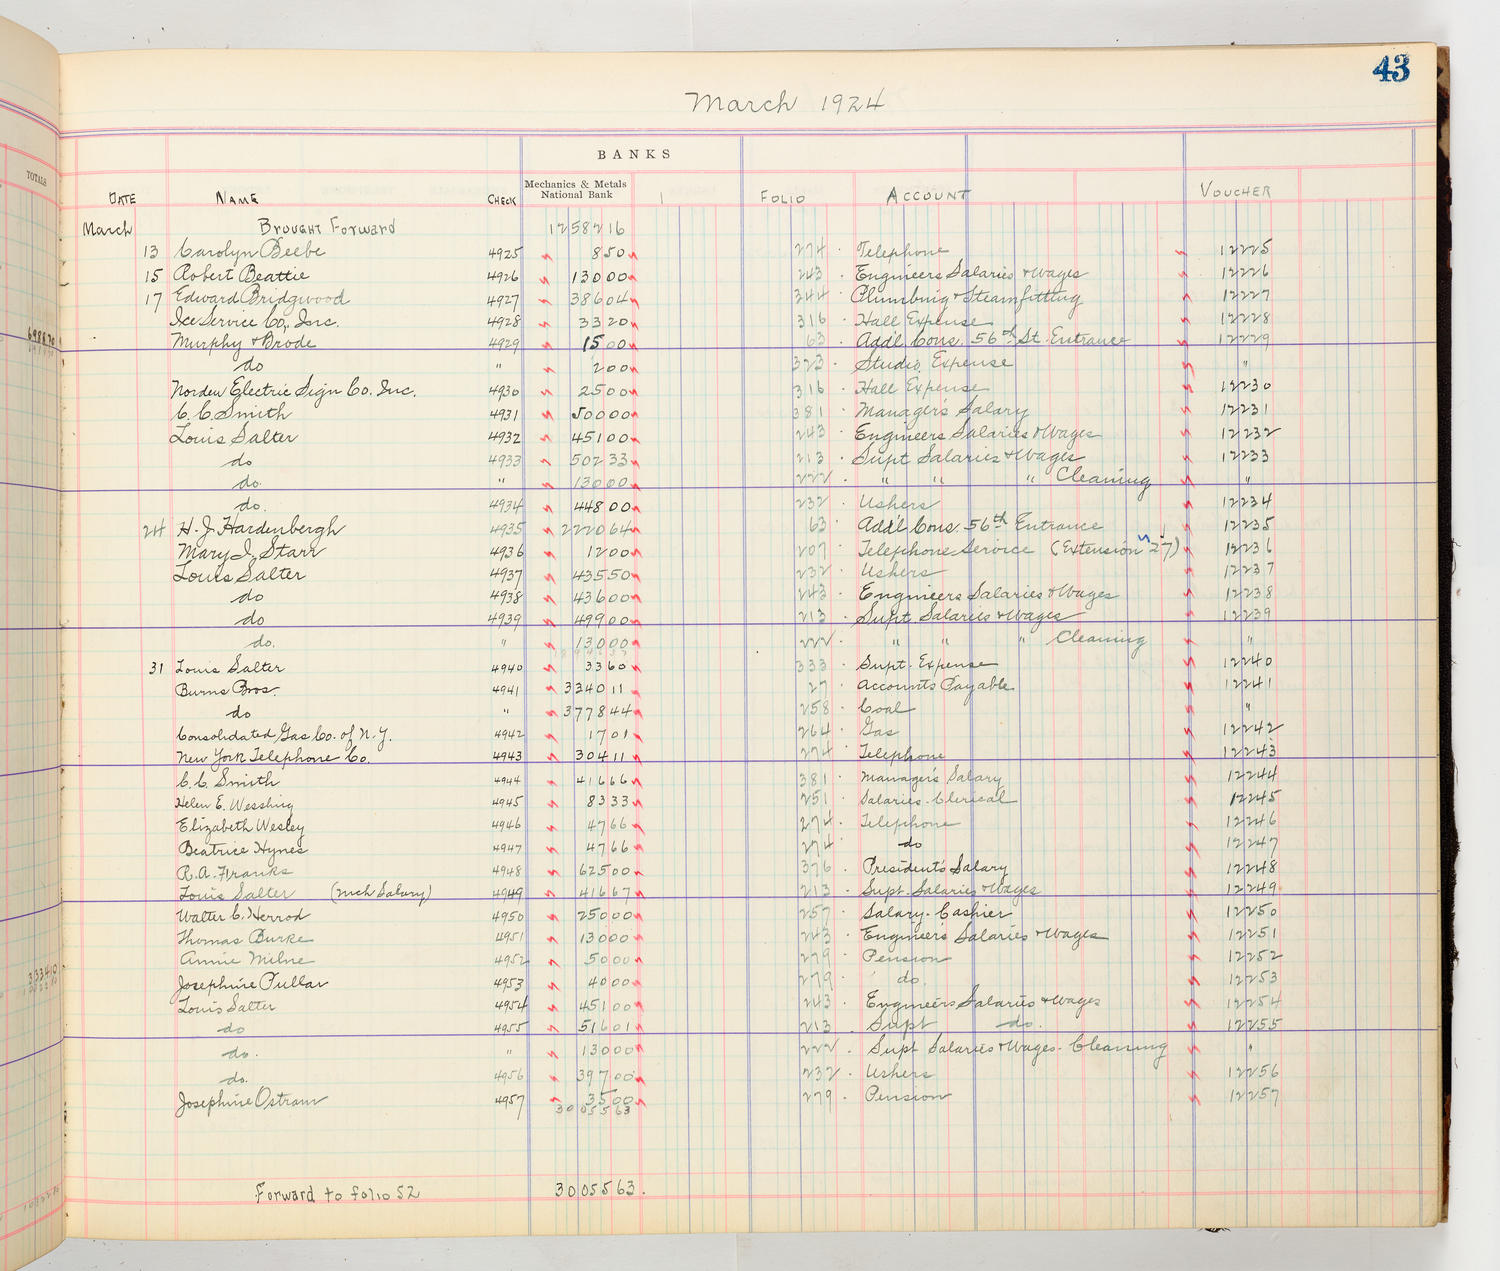 43
March 1924
BANKS
TOTALS
DATE NAME CHECK Mechanics & Metals National Bank FOLIO ACCOUNT VOUCHER
March Brought Forward 12582 16
13 Carolyn Beebe 4925 8 50 274 Telephone 12225
15 Robert Beattie 4926 130 00 243 Engineers Salaries & Wages 12226
17 Edward Bridgwood 4927 386 04 344 Plumbing & Steamfitting 12227
Ice Service Co., Inc. 4928 33 20 316 Hall Expense 12228
Murphy & Brode 4929 15 00 63 Add'l Cons. 56th St. Entrance 12229
do " 2 00 323 Studio Expense "
Norden Electric Sign Co. Inc. 4930 25 00 316 Hall Expense 12230
C. C. Smith 4931 500 00 381 Manager's Salary 12231
Louis Salter 4932 451 00 243 Engineers Salaries & Wages 12232
do 4933 502 33 213 Supt Salaries & Wages 12233
do. " 130 00 222 " " " Cleaning "
do. 4934 448 00 232 Ushers 12234
24 H. J. Hardenbergh 4935 2220 64 63 Add'l Cons. 56th Entrance 12235
Mary I. Starr 4936 12 00 207 Telephone Service (Extension "27) 12236
Louis Salter 4937 435 50 232 Ushers 12237
do 4938 436 00 243 Engineers Salaries & Wages 12238
do 4939 499 00 213 Supt. Salaries & Wages 12239
do. " 130 00 222 " " " Cleaning "
31 Louis Salter 4940 33 60 333 Supt. Expense 12240
Burns Bros. 4941 3340 11 27 Accounts Payable 12241
do " 3778 44 258 Coal "
Consolidated Gas Co. of N.Y. 4942 17 01 264 Gas 12242
New York Telephone Co. 4943 304 11 274 Telephone 12243
C. C. Smith 4944 416 66 381 Manager's Salary 12244
Helen E. Wessling 4945 83 33 251 Salaries-Clerical 12245
Elizabeth Wesley 4946 47 66 274 Telephone 12246
Beatrice Hynes 4947 47 66 274 do 12247
R. A. Franks 4948 625 00 376 President's Salary 12248
Louis Salter (Mch Salary) 4949 416 67 213 Supt. Salaries & Wages 12249
Walter C. Herrod 4950 250 00 257 Salary-Cashier 12250
Thomas Burke 4951 130 00 243 Engineer's Salaries & Wages 12251
Annie Milne 4952 50 00 279 Pension 12252
Josephine Pullar 4953 40 00 279 do. 12253
Louis Salter 4954 451 00 243 Engineers Salaries & Wages 12254
do 4955 516 01 213 Supt do. 12255
do. " 130 00 222 Supt Salaries & Wages-Cleaning "
do. 4956 397 00 232 Ushers 12256
Josephine Ostram 4957 35 00 279 Pension 12257
30055 63
Forward to folio 52 30055 63.